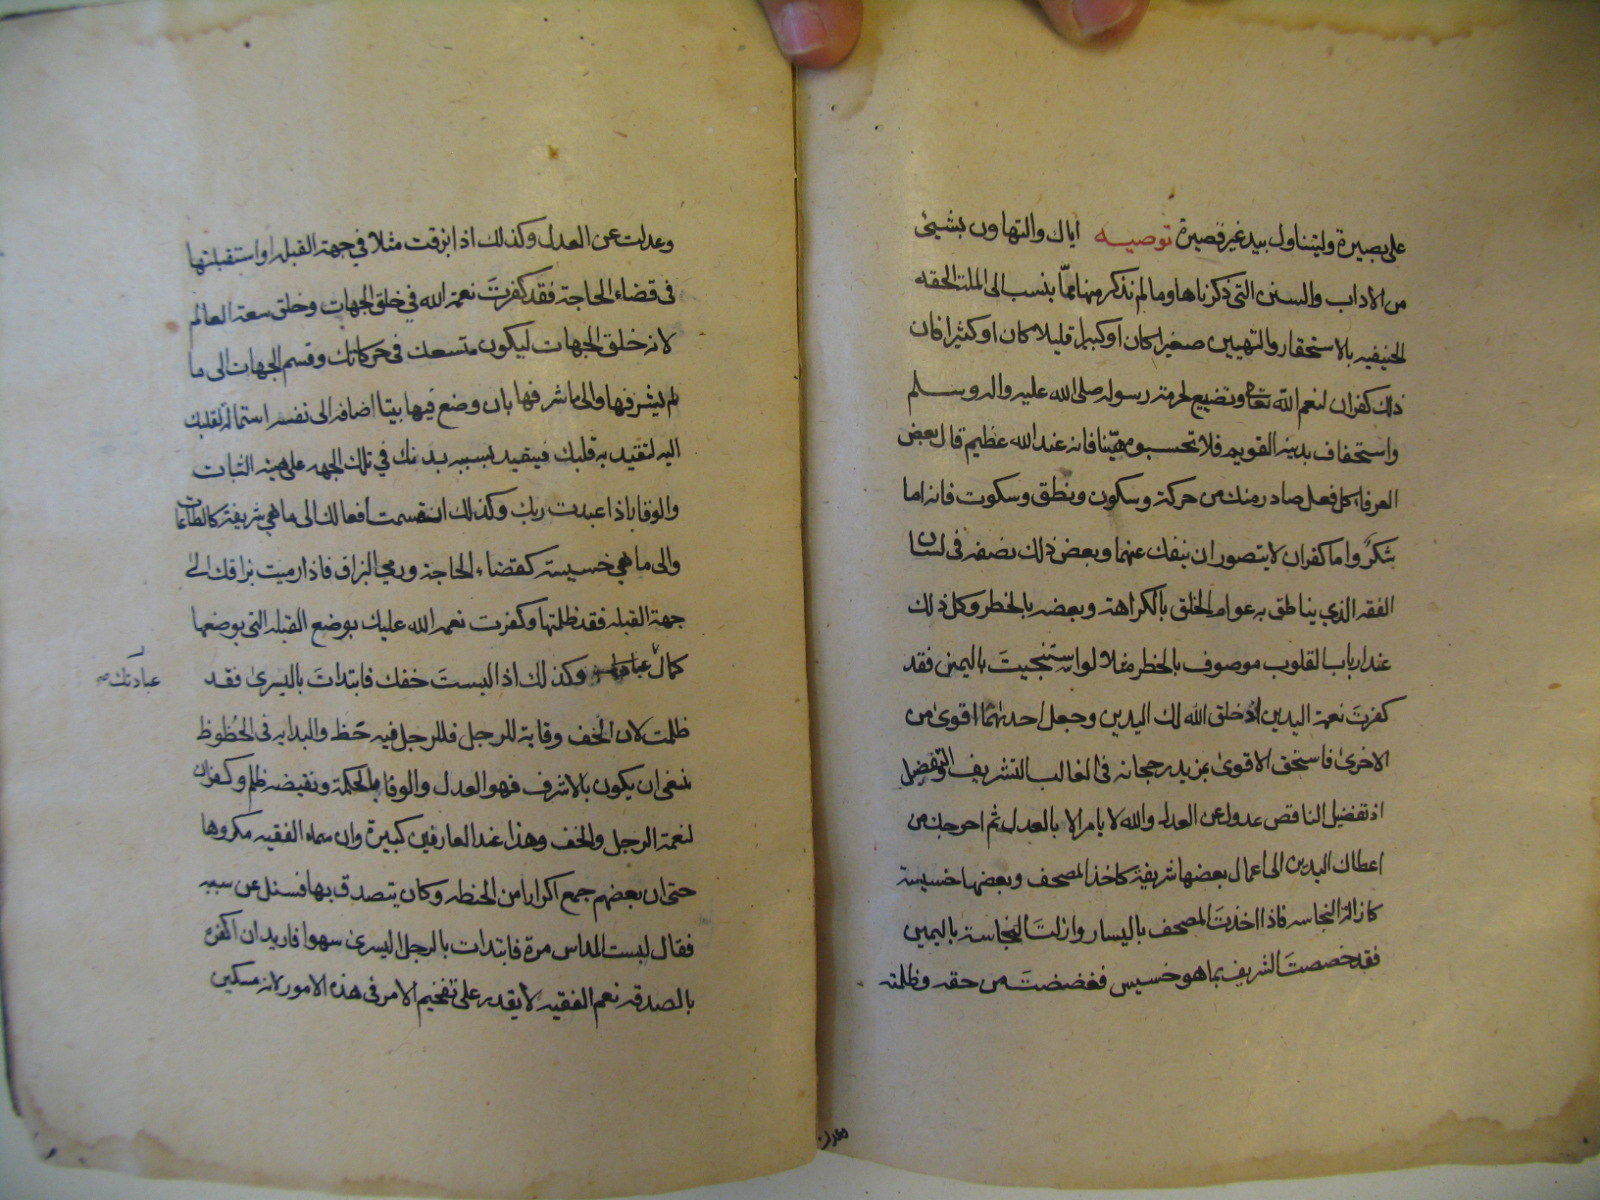 على بصيرة وليتناول بيد غير قصيرة توصيه اياك والتهاون بشيئ
من الاداب والسنن التى ذكرناها وما لم نذكر منها مما ينسب الى الملة الحقه
الحنيفيه بالاستحقار والتهيين صغيرا كان او كبيرا قليلا كان او كثيرا فان
ذلك كفران لنعم الله تعالى وتضييع لحرمة رسوله صلى الله عليه واله وسلم
واستخفاف بدينه القويم فلا تحسبوه هينا فانه عند الله عظيم قال بعض
العرفا كل فعل صادر منك من حركة وسكون ونطق وسكوت فانه اما
شكر واما كفران لا يتصور ان ينفك عنهما وبعض ذلك نصفه فى لسان
الفقه الذي يناطق به عوام الخلق بالكراهة وبعضه بالخطر وكل ذلك
عند ارباب القلوب موصوف بالخطر مثلا لو استنجيت باليمين فقد
كفرت نعمة اليدين اذ خلق الله لك اليدين وجعل احدىهما اقوى من
الاخرى فاستحق الاقوى بمزيد رجحانه فى الغالب التشريف والتفضيل
اذ تفضيل الناقص عدول عن العدل والله لا يامر الا بالعدل ثم احوجك من
اعطاك اليدين الى اعمال بعضها شريفة كاخذ المصحف وبعضها خسيسة
كازالة النجاسه فاذا اخذت المصحف باليسار وازلت النجاسة باليمين
فقد خصصت الشريف بما هو خسيس فغضضت من حقه وظلمته
وعدلت
وعدلت عن العدل وكذلك اذا بزقت مثلا في جهة القبله او استقبلتها
فى قضاء الحاجة فقد كفرت نعمة الله في خلق الجهات وخلق سعة العالم
لانه خلق الجهات ليكون متسعك فى حركاتك وقسم الجهات الى ما
لم يشرفها والى ما شرفها بان وضع فيها بيتا اضافه الى نفسه استمالة لقلبك
اليه لتقتيد به قلبك فيتقيد بسببه بدنك في تلك الجهه على هيئه الثبات
والوقار اذا عبدت ربك وكذلك انقسمت أفعالك الى ما هي شريفة كالطاعات
والى ما هي خسيسة كقضاء الحاجة ورمي البزاق فاذا رميت بزاقك الى
جهة القبله فقد ظلمتها وكفرت نعمه الله عليك بوضع القبله التي بوضعها
كمال وكذلك اذا لبست خفك فابتدات باليسرى فقد
عبادتك صح
ظلمت لان الخف وقاية للرجل فللرجل فيه حظ والبدايه فى الحظوظ
ينبغى ان يكون بالاشرف فهو العدل والوفا بالحكمة ونقيضه ظلم وكفران
لنعمة الرجل والخف وهذا عند العارفين كبيرة وان سماه الفقيه مكروها
حتى ان بعضهم جمع اكرارا من الحنطه وكان يتصدق بها فسئل عن سببه
فقال لبست المداس مرة فابتدات بالرجل اليسرى سهوا فاريد ان اكفره
بالصدقه نعم الفقيه لا يقدر على تفخيم الامر فى هذه الامور لانه مسكين